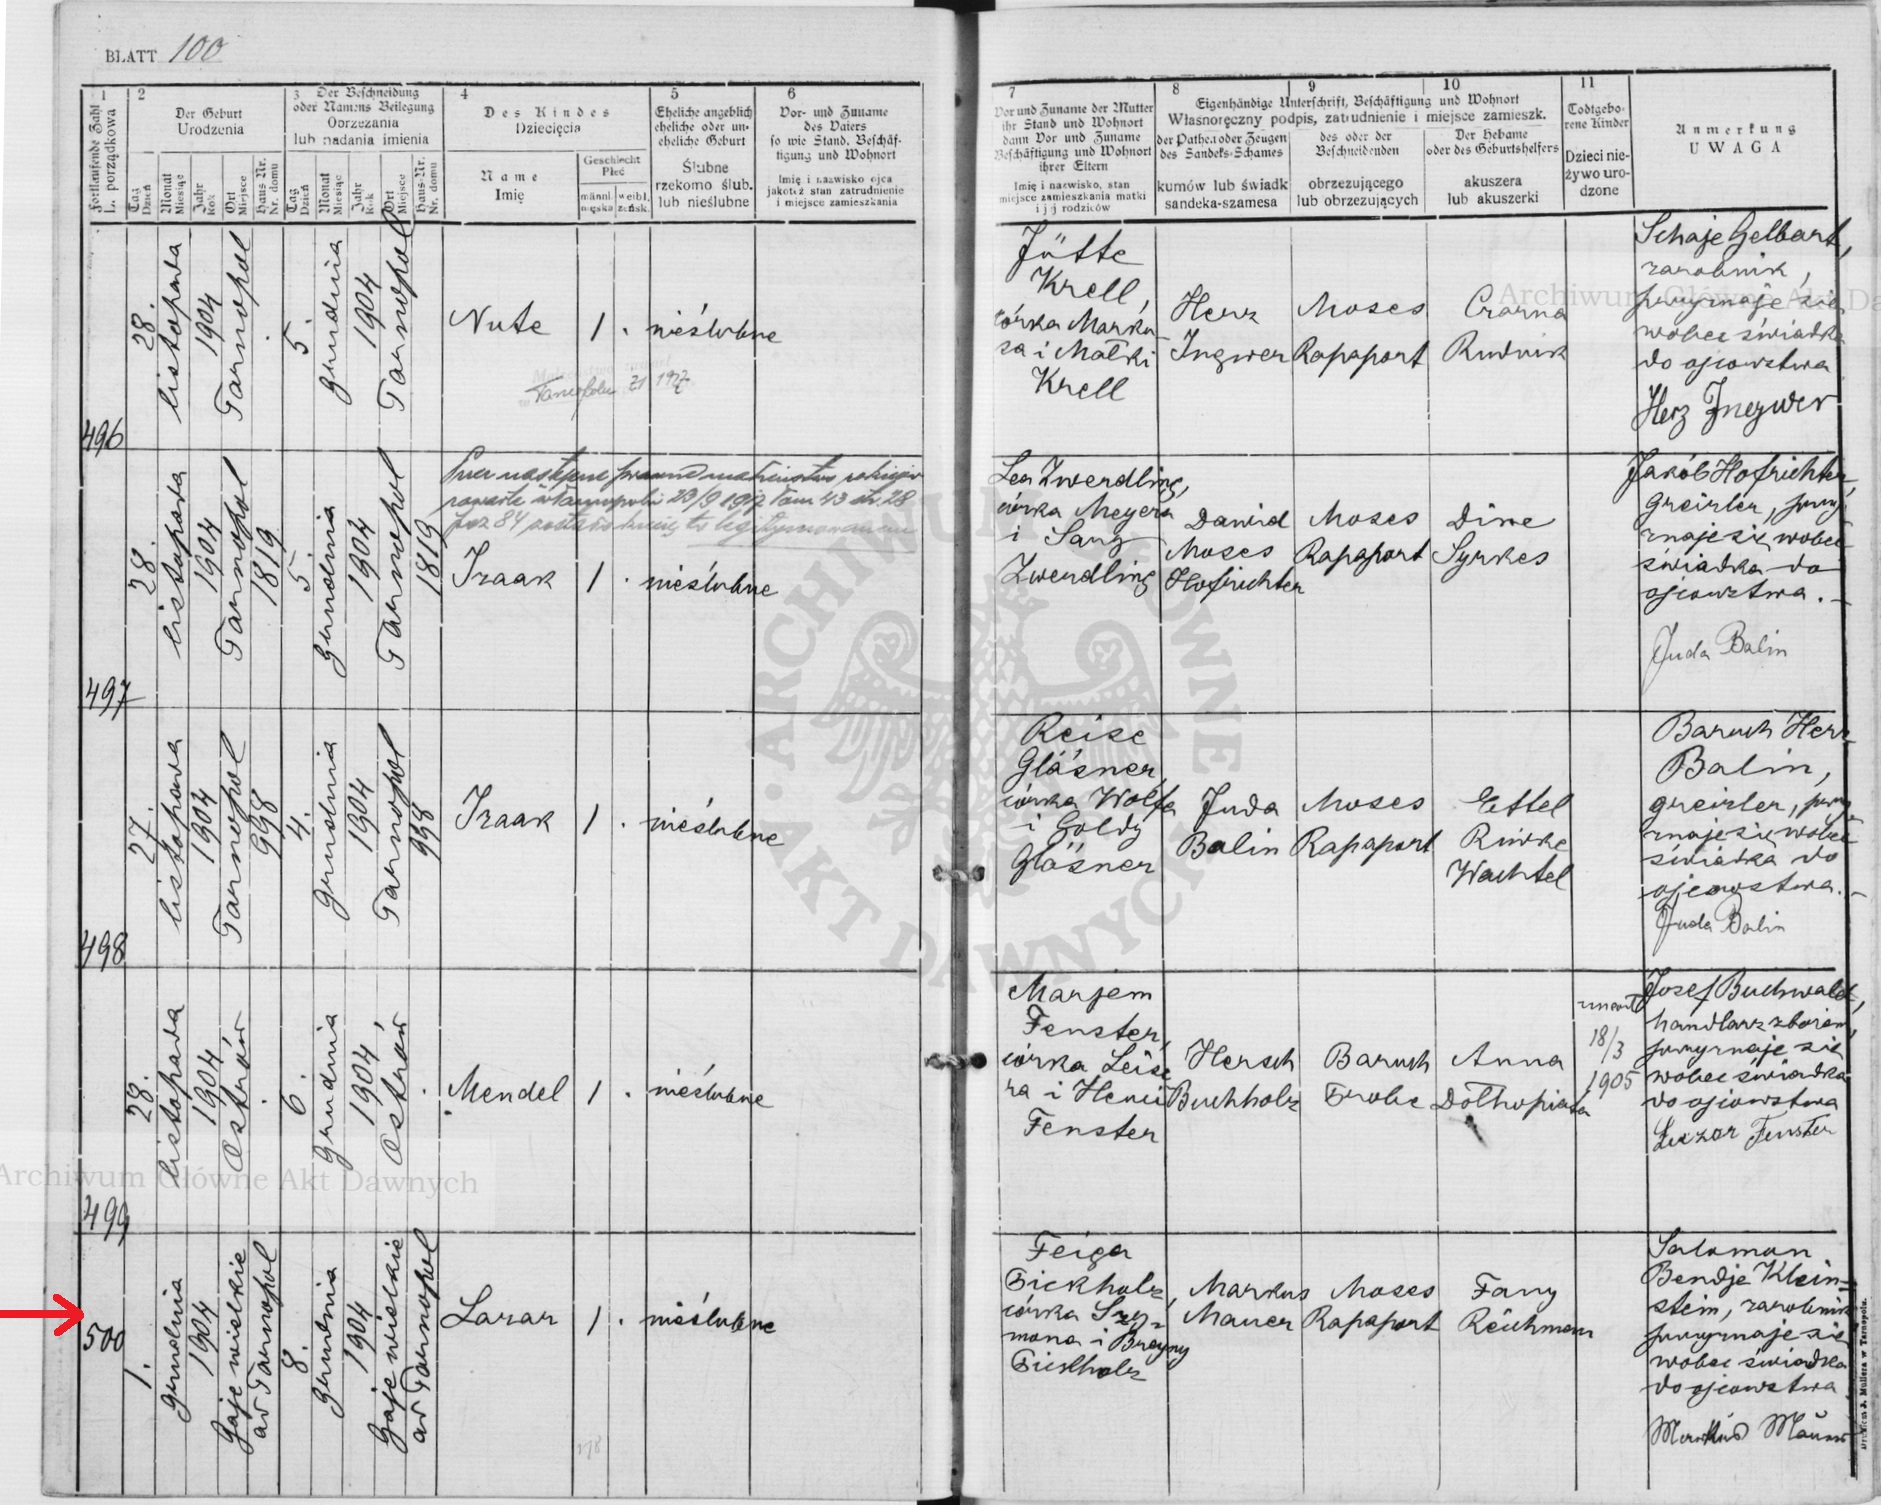 BLATT 100
1
Fortlaufende Zahl
L. porządkowa
2
Der Geburt
Urodzenia
Tag
Dzień
Monat
Miesiąc
Jahr
Rok
Ort
Miejsce
Haus Nr.
Nr. domu
3
Der Beschneidung
oder Namens Beilegung
Obrzezania
lub nadania imienia
Tag
Dzień
Monat
Miesiąc
Jahr
Rok
Ort
Miejsce
Haus-Nr.
Nr. domu
4
Des Kindes
Dziecięcia
Name
Imię
Geschlecht
Płeć
männl.
męska
weibl.
żeńsk.
5
Eheliche angeblich
eheliche oder un-
eheliche Geburt
Ślubne
rzekomo ślub.
lub nieślubne
6
Vor- und Zuname
des Vaters
so wie Stand. Beschäf-
tigung und Wohnort
Imię i nazwisko ojca
jakoteż stan zatrudnienie
i miejsce zamieszkania
7
Vor und Zuname der Mutter
ihr Stand und Wohnort
dann Vor und Zuname
Beschäftigung und Wohnort
ihrer Eltern
Imię i nazwisko, stan
miejsce zamieszkania matki
i jej rodziców
8 9 10
Eigenhändige Unterschrift, Beschäftigung und Wohnort
Własnoręczny podpis, zatrudnienie i miejsce zamieszk.
der Pathen oder Zeugen
des Sandeks-Schames
kumów lub świadk
sandeka-szamesa
des oder der
Beschneidenden
obrzezującego
lub obrzezujących
Der Hebame
oder des Geburtshelfers
akuszera
lub akuszerki
11
Todtgebo-
rene Kinder
Dzieci nie-
żywo uro-
dzone
Anmerkung
UWAGA
496
28.
listopada
1904
Tarnopol
5
grudnia
1904
Tarnopol
Nute
1
nieślubne
Jütte
Krell,
córka Marku
sa i Małki
Krell
Herz
Ingwer
Moses
Rapaport
Czarna
Rudnik
Schaje Gelbart,
zarobnik,
przyznaje się
wobec świadka
do ojcowstwa
Herz Ingwer
497
28.
listopada
1904
Tarnopol
1819
5
grudnia
1904
Tarnopol
1819
Izaak
1
nieślubne
Lea Zwerdling,
córka Meyera
i
Zwerdling
Dawid
Moses
Hofrichter
Moses
Rapaport
Dine
Syrkes
Jakób Hofrichter,
greizler, przy
znaje się wobec
świadka do
ojcowstwa.
Juda Balin
498
27.
listopada
1904
Tarnopol
998
4.
grudnia
1904
Tarnopol
998
Izaak
1
nieślubne
Reise
Gläsner,
córka Wolfa
i Goldy
Gläsner
Juda
Balin
Moses
Rapaport
Ettel
Riwke
Wachtel
Baruch Herz
Balin,
greizler, przy
znaje się wobec
świadka do
ojcowstwa.
Juda Balin
499
28.
listopada
1904
Ostrów
6.
grudnia
1904,
Ostrów
Mendel
1
nieślubne
Marjem
Fenster,
córka Leise
ra i Henci
Fenster
Hersch
Buchholz
Baruch
Grobe
Anna
18/3
1905
Josef Buchwald,
handlarz zbożem,
przyznaje się
wobec świadka
do ojcowstwa
Leizor Fenster
500
1.
grudnia
1904
Gaje wielkie
ad Tarnopol
8.
grudnia
1904
Gaje wielkie
ad Tarnopol
Lazar
1
nieślubne
Feiga
Bickholz,
córka Szy-
mona i Brayny
Bickholz
Markus
Mauer
Moses
Rapaport
Fany
Reichman
Salomon
Bendje Klein-
stein, zarobnik
przyznaje się
wobec świadka
do ojcowstwa
Markus Mauer
Archiwum Główne Akt Dawnych
ARCHIWUM GŁÓWNE AKT DAWNYCH